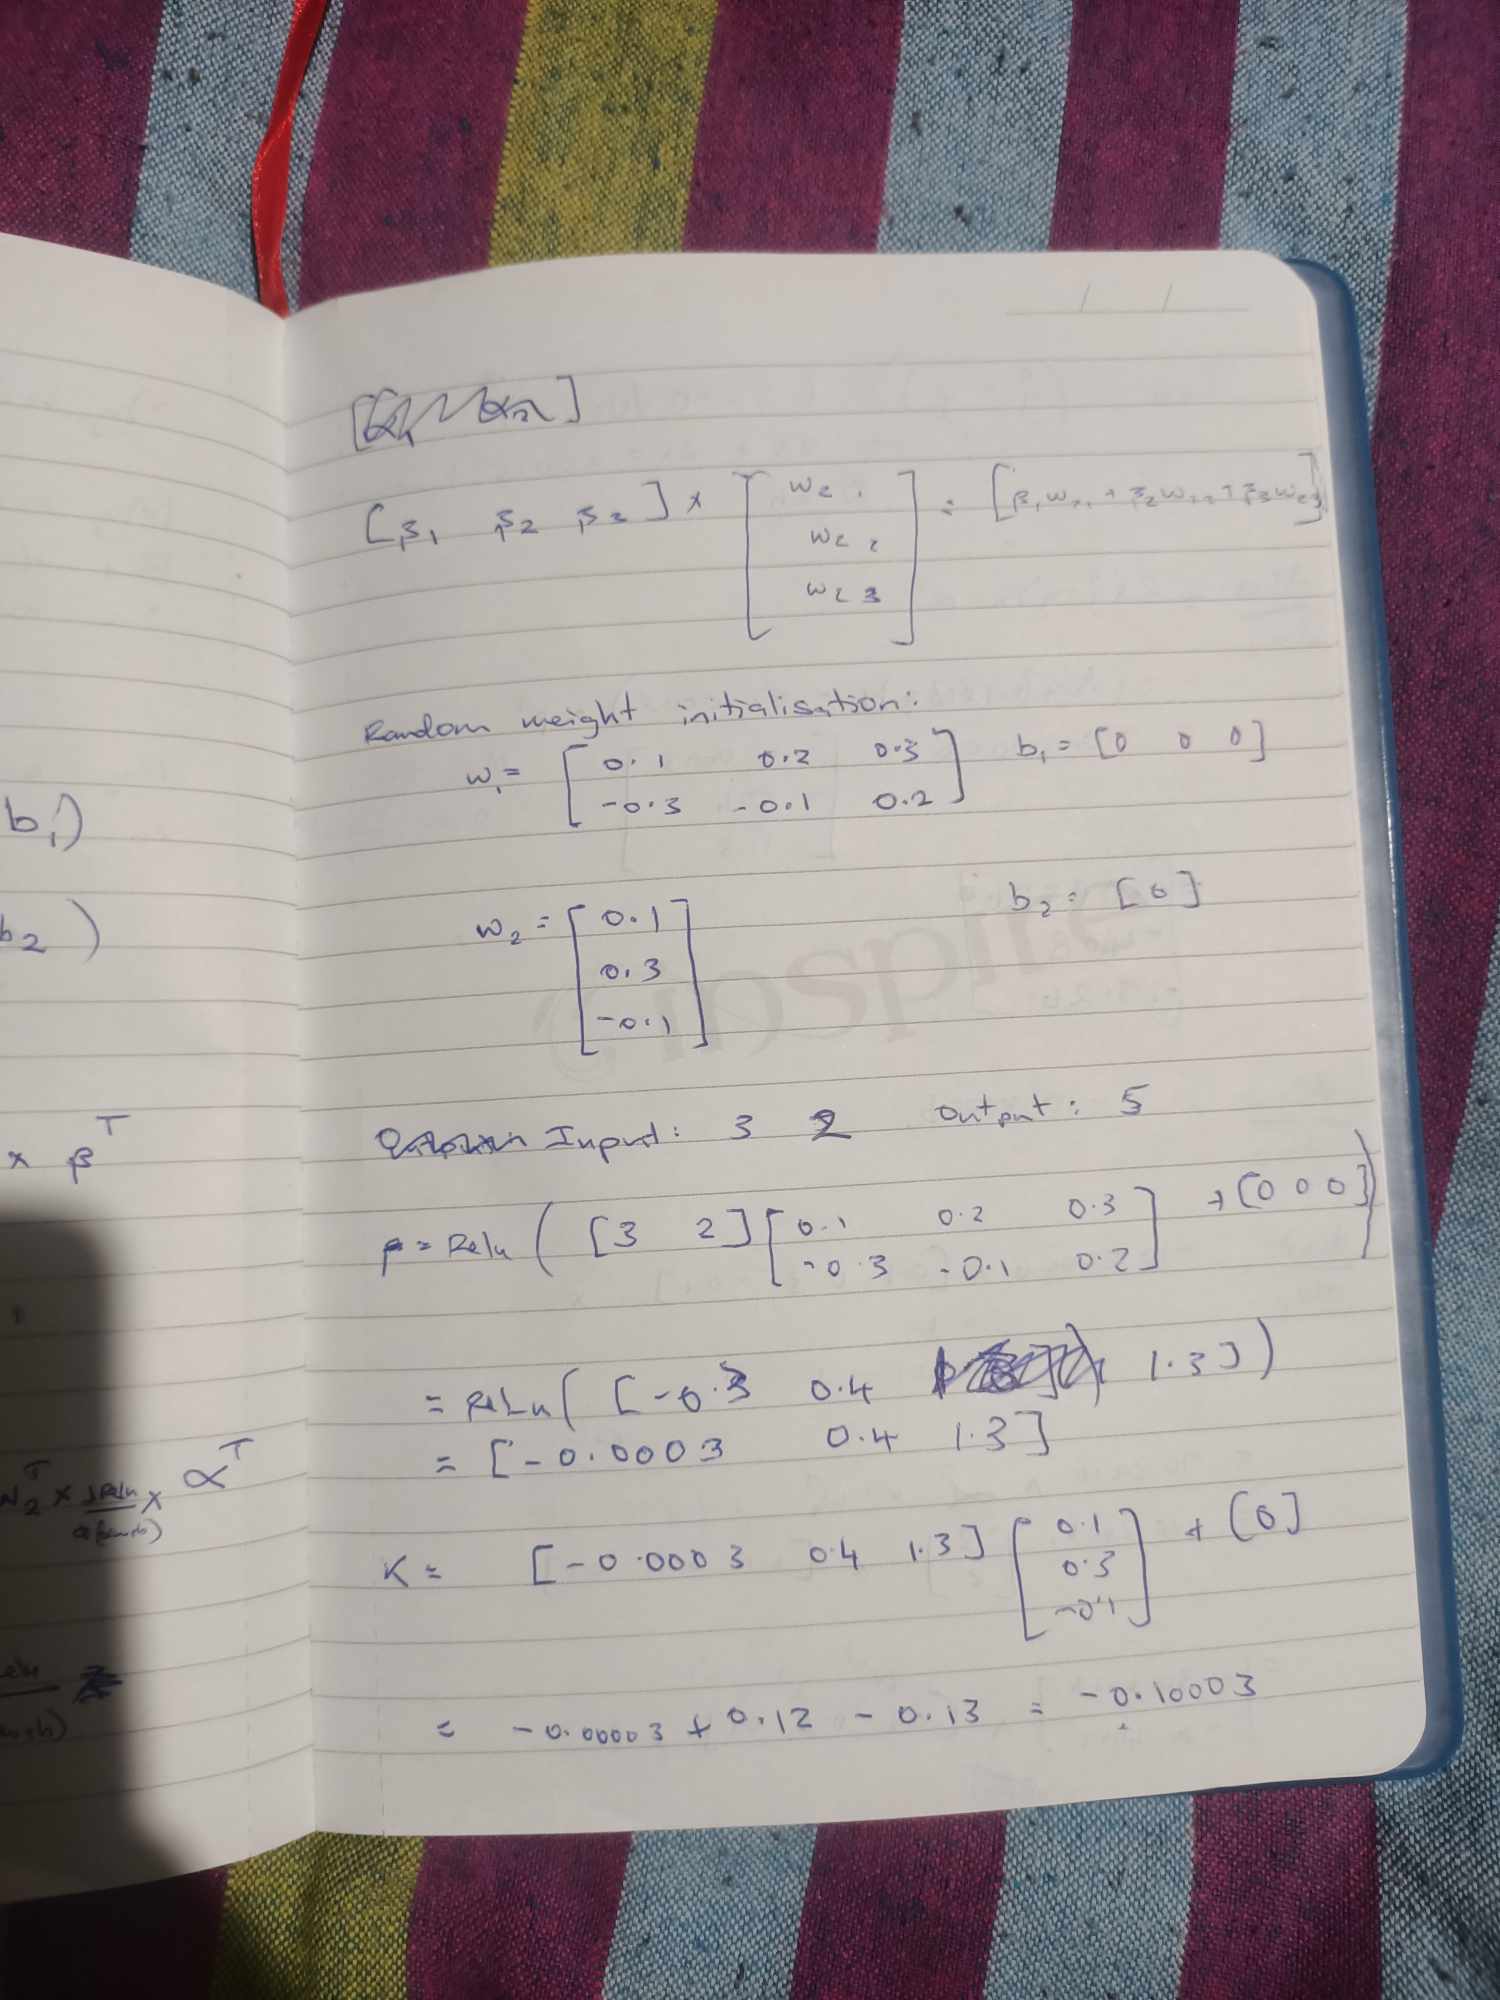 b₁)
b₂)
x βᵀ
w₂ᵀ x x αᵀ
[β₁ β₂ β₃] x [w₂₁ w₂₂ w₂₃] = [β₁w₂₁ + β₂w₂₂ + β₃w₂₃]
Random weight initialisation:
w₁ = [0.1 0.2 0.3 b₁ = [0 0 0]
-0.3 -0.1 0.2]
w₂ = [0.1 b₂ = [0]
0.3
-0.1]
inspire
Input: 3 2 Output: 5
β = Relu ( [3 2] [0.1 0.2 0.3 + [0 0 0])
-0.3 -0.1 0.2]
= ReLu ( [-0.3 0.4 1.3])
= [-0.0003 0.4 1.3]
K = [-0.0003 0.4 1.3] [0.1 + [0]
0.3
-0.1]
= -0.00003 + 0.12 - 0.13 = -0.10003